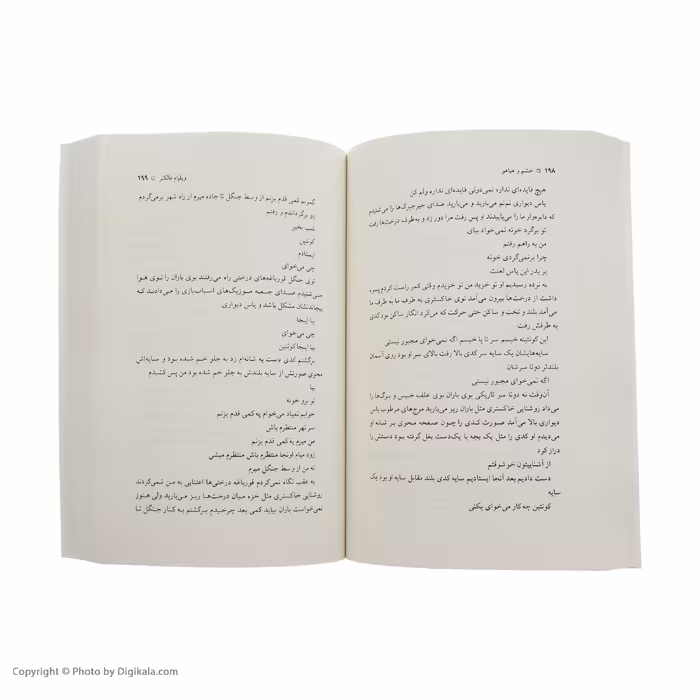 ۱۹۸ □ خشم و هیاهو
هیچ فایده‌ای نداره نمی‌دونی فایده‌ای نداره ولم کن
یاس دیواری نم‌نم می‌بارید و می‌بارید صدای جیرجیرک‌ها را می‌شنیدم
که دایره‌وار ما را می‌پاییدند او پس رفت مرا دور زد و به‌طرف درخت‌ها رفت
تو برگرد خونه نمی‌خواد بیای
من به راهم رفتم
چرا برنمی‌گردی خونه
بر پدر این یاس لعنت
به نرده رسیدیم او تو خزید من تو خزیدم وقتی کمر راست کردم پسره
داشت از درخت‌ها بیرون می‌آمد توی خاکستری به طرف ما به طرف ما
می‌آمد بلند و تخت و ساکن حتی حرکت که می‌کرد انگار ساکن بود کدی
به طرفش رفت
این کونتینه خیسم سر تا پا خیسم اگه نمی‌خوای مجبور نیستی
سایه‌هایشان یک سایه سر کدی بالا رفت بالای سر او بود روی آسمان
بلندتر دوتا سرشان
اگه نمی‌خوای مجبور نیستی
آن‌وقت نه دوتا سر تاریکی بوی باران بوی علف خیس و برگ‌ها را
می‌داد روشنایی خاکستری مثل باران ریز می‌بارید موج‌های مرطوب یاس
دیواری بالا می‌آمد صورت کدی را چون صفحه محوی بر شانه او
می‌دیدم او کدی را مثل یک بچه با یک‌دست بغل گرفته بود دستش را
دراز کرد
از آشناییتون خوشوقتم
دست دادیم بعد آنجا ایستادیم سایه کدی بلند مقابل سایه او بود یک
سایه
کونتین چه‌کار می‌خوای بکنی
ویلیام فاکنر □ ۱۹۹
گمونم کمی قدم بزنم از وسط جنگل تا جاده میرم از راه شهر برمی‌گردم
رو برگرداندم و رفتم
شب بخیر
کونتین
ایستادم
چی می‌خوای
توی جنگل قورباغه‌های درختی راه می‌رفتند بوی باران را توی هوا
می‌شنیدم صدای جعبه موزیک‌های اسباب‌بازی را می‌دادند که
پیچاندنشان مشکل باشد و یاس دیواری
بیا اینجا
چی می‌خوای
بیا اینجا کونتین
برگشتم کدی دست به شانه‌ام زد به جلو خم شده بود و سایه‌اش
محوی صورتش از سایه بلندش به جلو خم شده بود من پس کشیدم
بپا
تو برو خونه
خوابم نمیاد می‌خوام یه کمی قدم بزنم
سر نهر منتظرم باش
من میرم یه کمی قدم بزنم
زود میام اونجا منتظرم باش منتظرم میشی
نه من از وسط جنگل میرم
به عقب نگاه نمی‌کردم قورباغه درختی‌ها اعتنایی به من نمی‌کردند
روشنایی خاکستری مثل خزه میان درخت‌ها ریز می‌بارید ولی هنوز
نمی‌خواست باران بیاید کمی بعد چرخیدم برگشتم به کنار جنگل تا
Copyright © Photo by Digikala.com